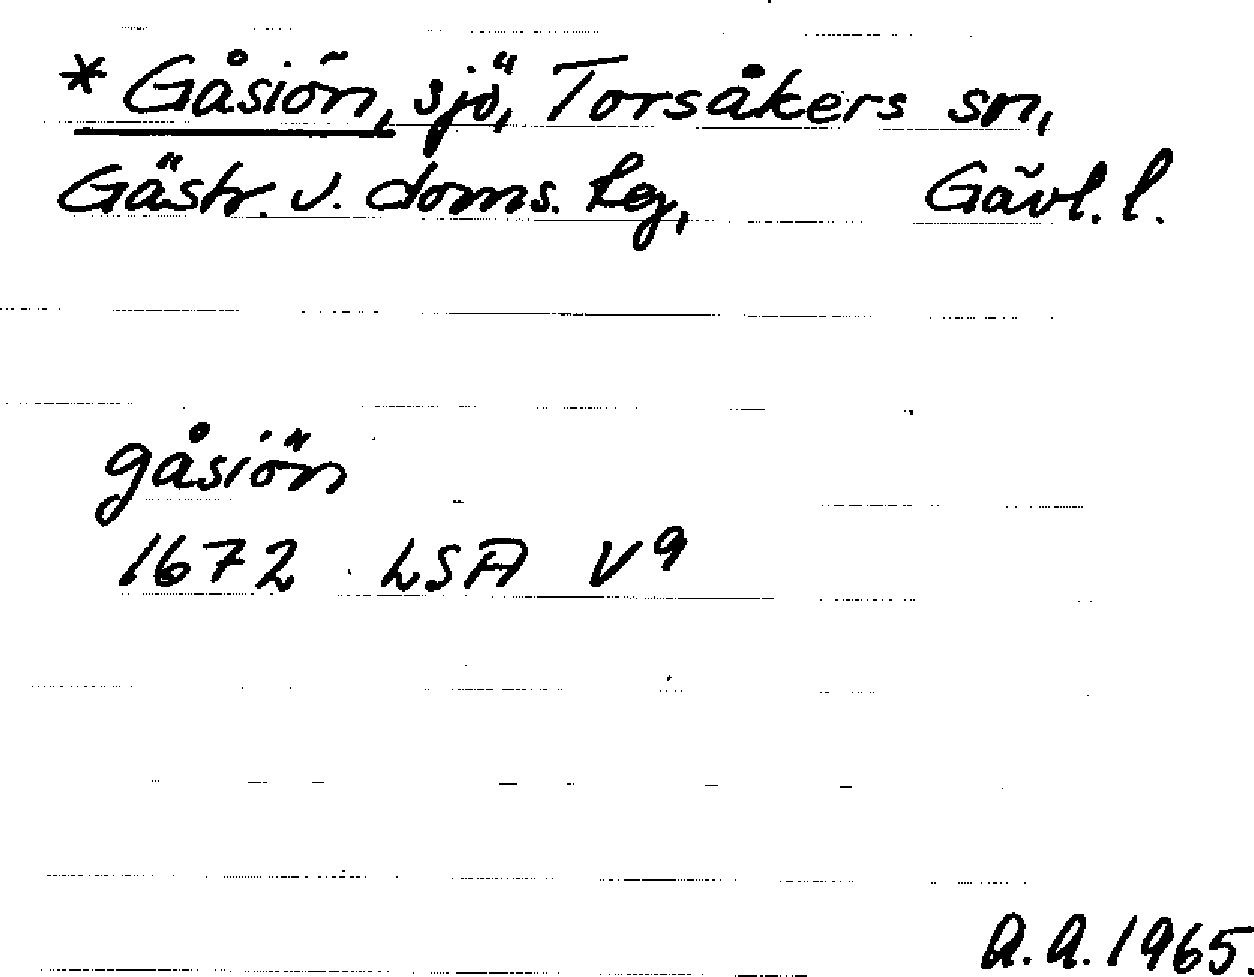 * Gåsiön, sjö, Torsåkers sn,
Gästr. v. doms. lag, Gävl. l.
gåsiön
1672 LSA V9
A.A. 1965.